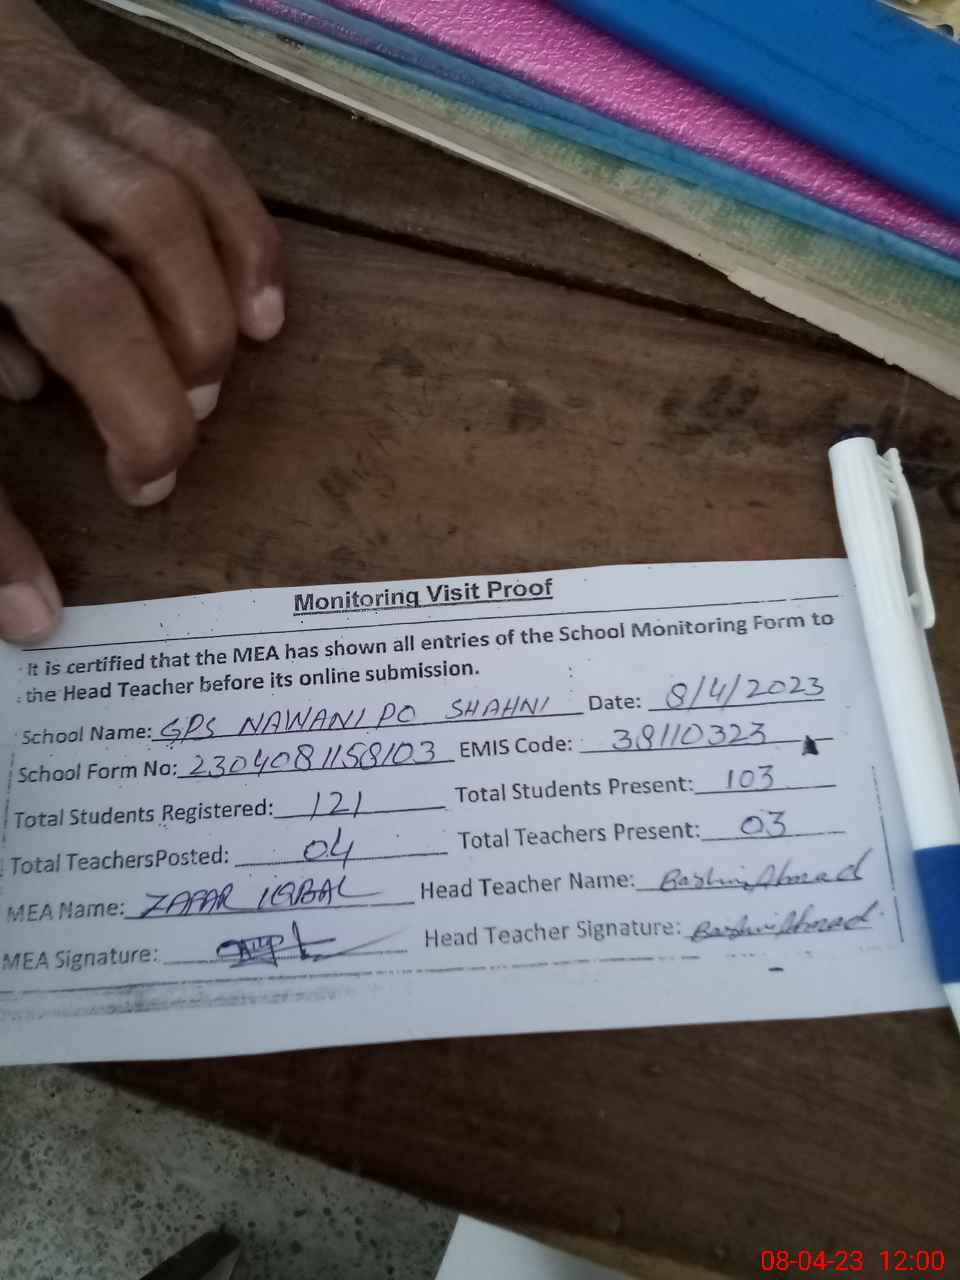 Monitoring Visit Proof
It is certified that the MEA has shown all entries of the School Monitoring Form to
the Head Teacher before its online submission.
School Name: GPS NAWANI PO SHAHNI Date: 8/4/2023
School Form No: 2304081158103 EMIS Code: 38110323
Total Students Registered: 121 Total Students Present: 103
Total TeachersPosted: 04 Total Teachers Present: 03
MEA Name: ZAFAR IQBAL Head Teacher Name: Bashir Ahmad
MEA Signature: Head Teacher Signature: Bashir Ahmad
08-04-23 12:00